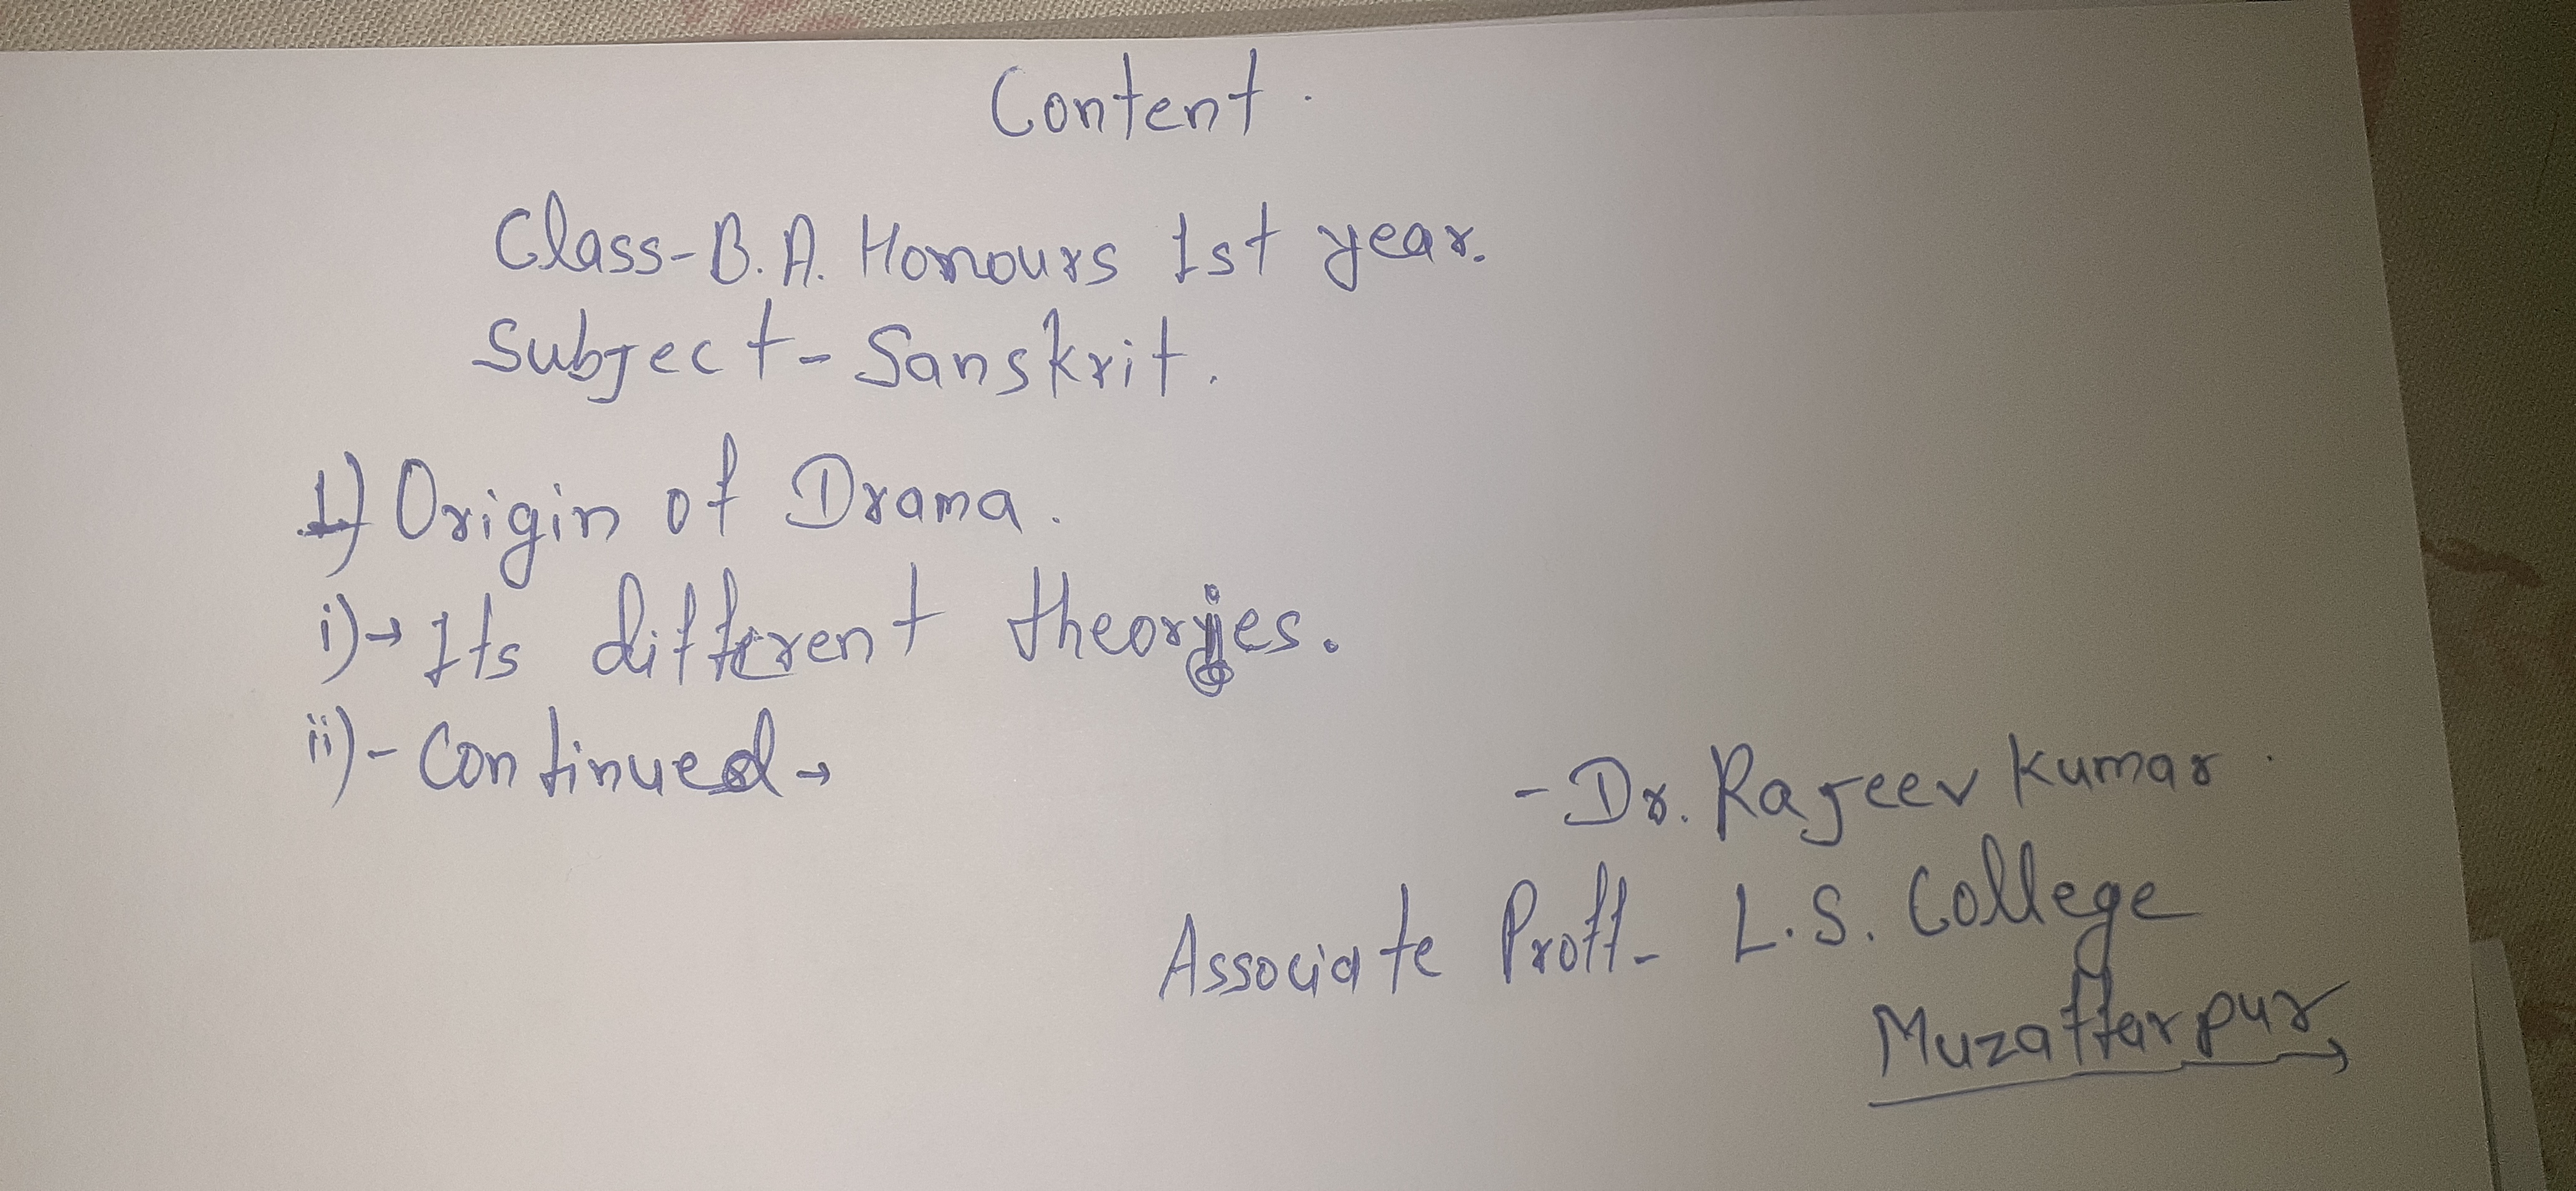 Content.
Class-B.A. Honours 1st year.
Subject- Sanskrit.
1) Origin of Drama.
i)→ Its different theories.
ii)- Continued→
- Dr. Rajeev Kumar.
Associate Proff- L.S. College
Muzaffarpur